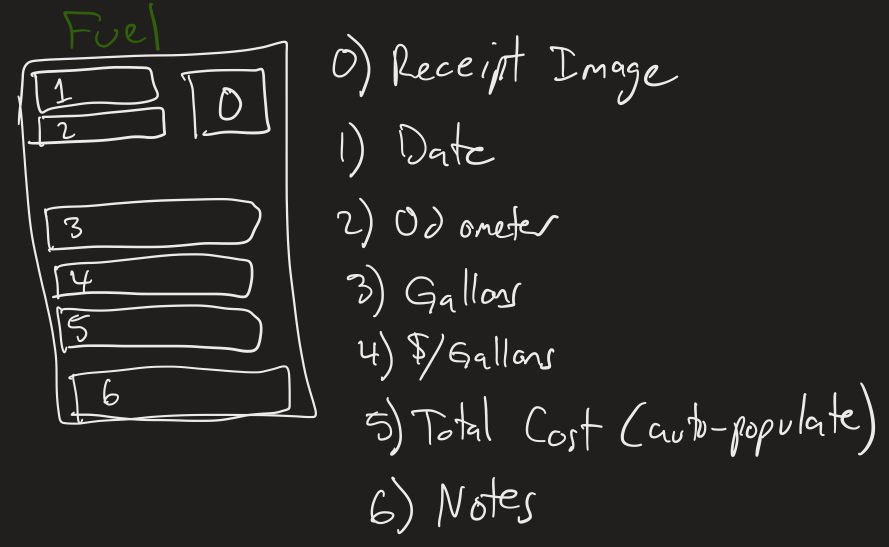 Fuel
1
0
2
3
4
5
6
0) Receipt Image
1) Date
2) Odometer
3) Gallons
4) $/Gallons
5) Total Cost (auto-populate)
6) Notes